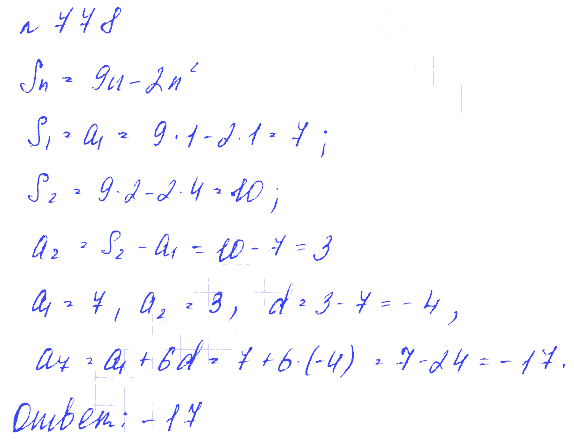 n 778
Sn = 9n - 2n²
S₁ = a₁ = 9·1 - 2·1 = 7;
S₂ = 9·2 - 2·4 = 10;
a₂ = S₂ - a₁ = 10 - 7 = 3
a₁ = 7, a₂ = 3, d = 3 - 7 = -4,
a₇ = a₁ + 6d = 7 + 6·(-4) = 7 - 24 = -17.
Ответ: -17